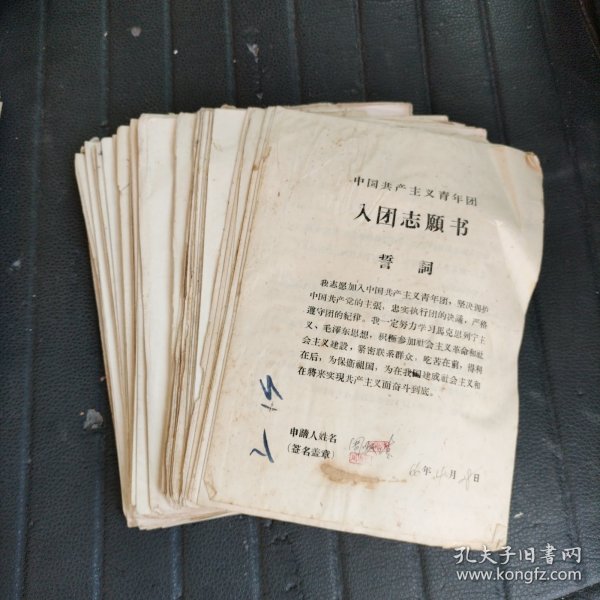 中国共产主义青年团
入团志願书
誓詞
我志愿加入中国共产主义青年团，坚决拥护
中国共产党的主張，忠实执行团的决議，严格
遵守团的紀律。我一定努力学习馬克思列宁主
义、毛泽东思想，积极参加社会主义革命和社
会主义建設，紧密联系群众，吃苦在前，得利
在后，为保衛祖国，为在我国建成社会主义和
在將来实現共产主义而奋斗到底。
申請人姓名
(签名盖章)
66年 月28日
孔夫子旧书网
www.kongfz.com